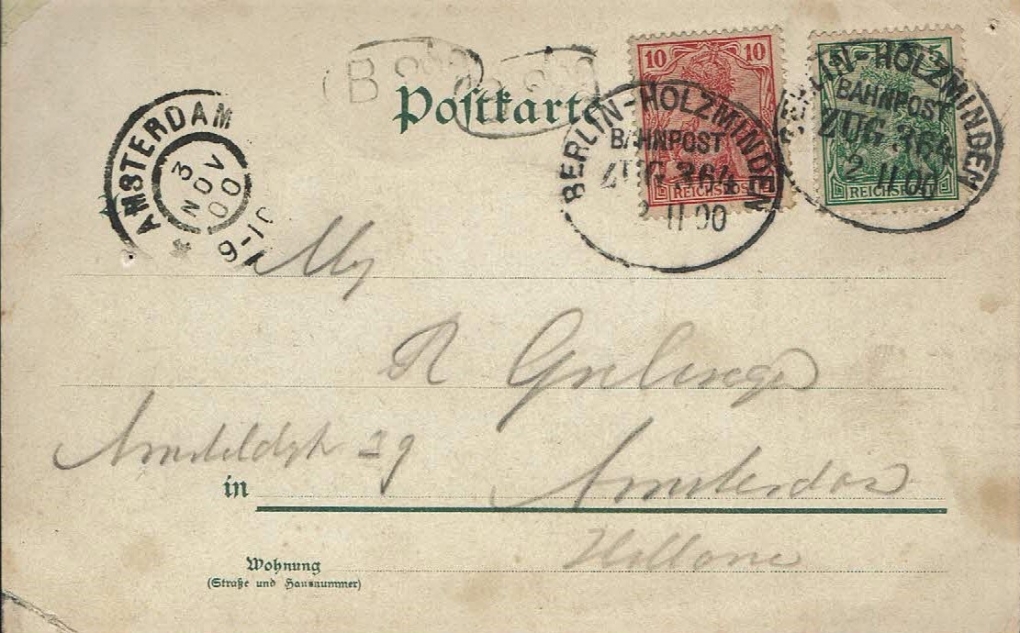 Postkarte
10 10
REICHSPOST
5
REICHSPOST
BERLIN-HOLZMINDEN
BAHNPOST
ZUG 364
2 11 00
BERLIN-HOLZMINDEN
BAHNPOST
ZUG 364
2 11 00
AMSTERDAM
3
NOV
00
9-10
R
39
in Amsterdam
Wohnung
(Straße und Hausnummer)